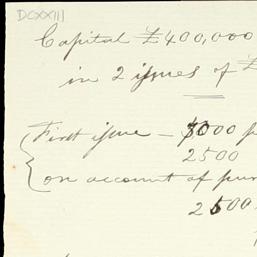 DCXXIII
Capital £400,000
in 2 issues of £
First issue — 3000
2500
on account of pur
2500